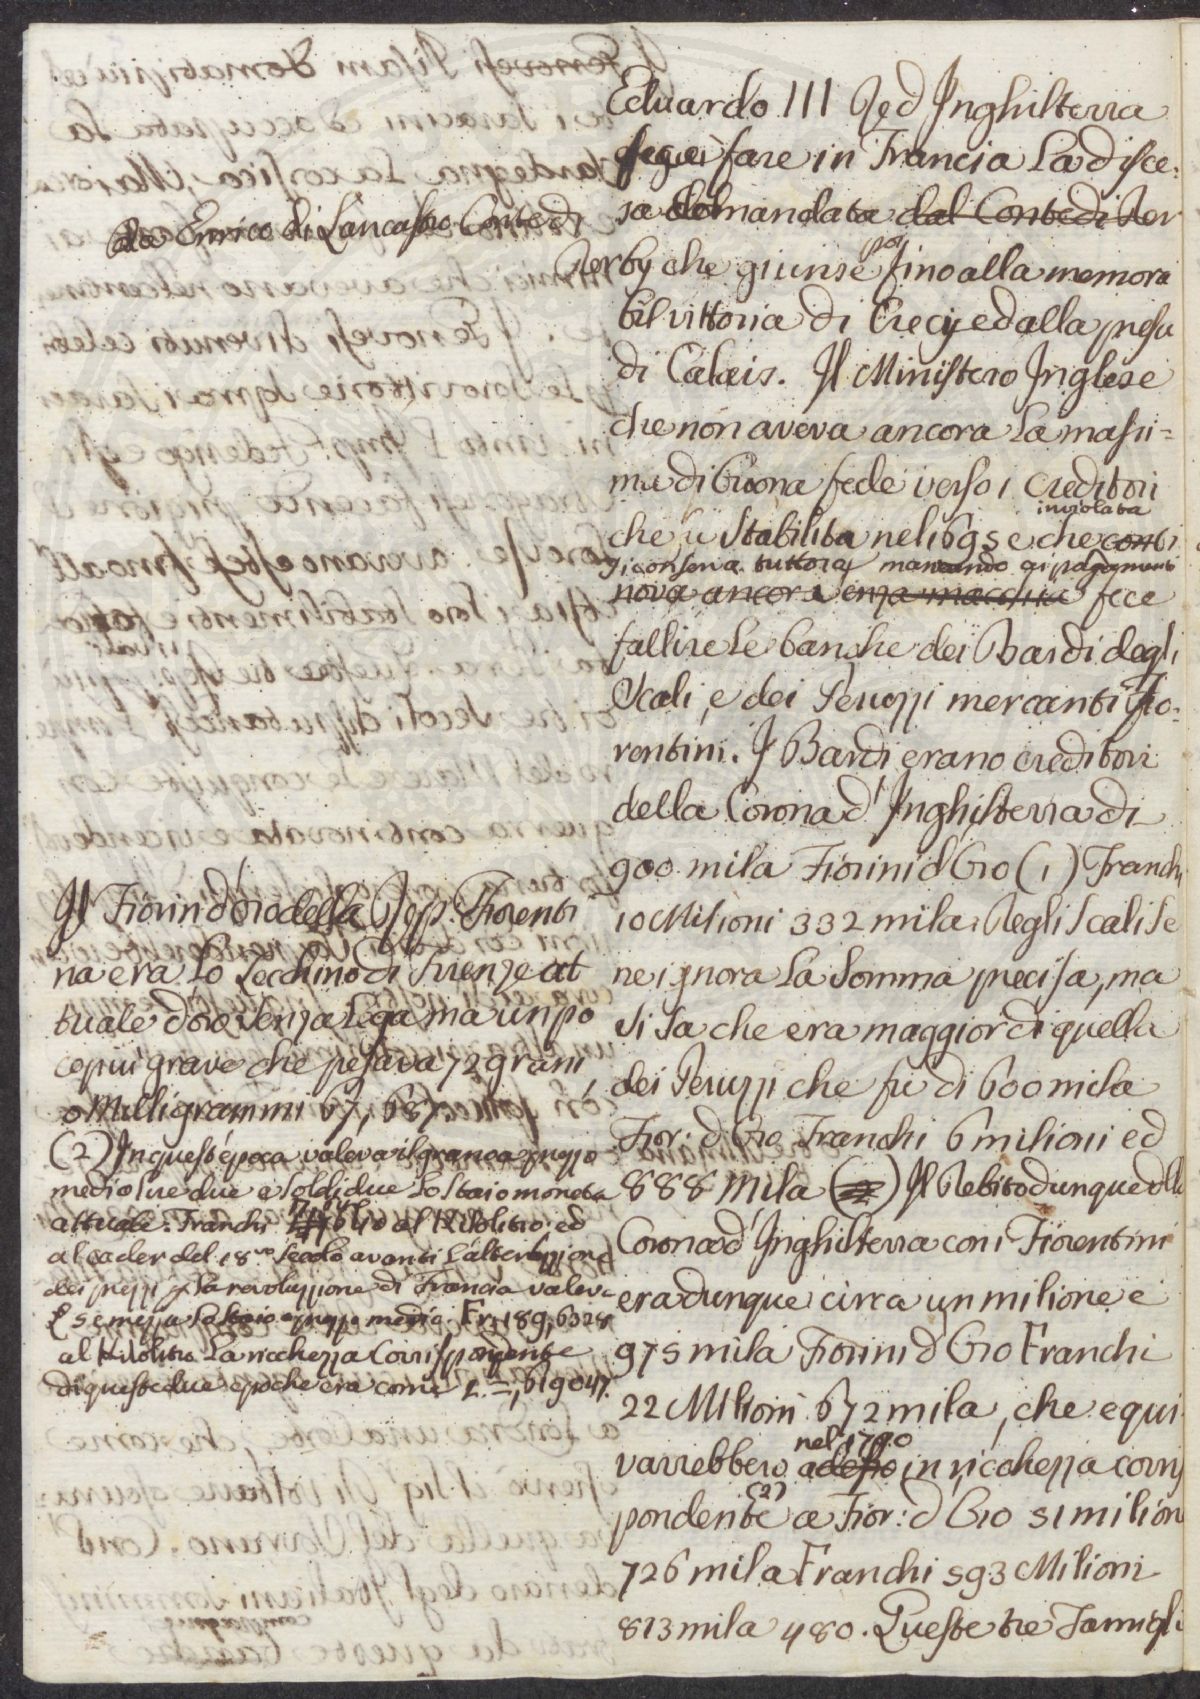 Eduardo III Re d'Inghilterra
fece fare in Francia La disce-
sa comandata dal Conte di Der
da Enrico di Lancastro Conte di
Derby che giunse poi fino alla memora
bil vittoria di Crecy e dalla presa
di Calais. Il Ministero Inglese
che non aveva ancora La massi=
ma di buona fede verso i Creditori
che fù Stabilita nel 1695 e che conti
inviolata
si conserva tuttora, mancando ai pagamenti
nova ancora senza macchia fece
fallire Le banche dei Bardi degli
Scali, e dei Peruzzi mercanti Fio-
rentini. I Bardi erano creditori
della Corona d'Inghilterra di
900 mila Fiorini d'Oro (1) Franchi
10 Milioni 332 mila. Degli Scali Se
ne ignora La Somma precisa, ma
Si Sa che era maggior di quella
dei Peruzzi che fù di 600 mila
Fior: d'Oro Franchi 6 milioni ed
888 mila (2) Il Debito dunque della
Corona d'Inghilterra con i Fiorentini
era dunque circa un milione e
975 mila Fiorini d'Oro Franchi
22 Milioni 672 mila, che equi
varrebbero adesso in ricchezza corris
nel 1790
pondente (2) a Fior: d'Oro 51 milion
726 mila Franchi 593 Milioni
813 mila 480. Queste tre Famigli
Il Fiorin d'Oro della Rep. Fiorenti
na era Lo Zecchino di Firenze at
tuale d'oro Senza Lega ma un po
co più grave che pesava 72 grani,
o Milligrammi 67, 687.
(2) In quest'epoca valeva il grano a prezzo
medio lire due e Soldi due Lo Staio moneta
attuale. Franchi al Kilolitro ed
al cader del 18.mo Secolo avanti L'alterazione
dei prezzi p. La revoluzione di Francia valeva
£ 5 e mezza Lo Staio a prezzo medio, Fr. 189,6328
al Kilolitro La ricchezza Corrispondente
di queste due epoche era come 1. =, 619047.